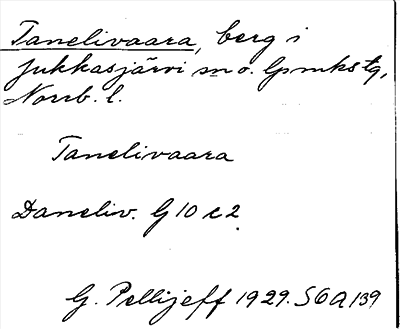 Tanelivaara, berg i
Jukkasjärvi sn o. lpmkstg,
Norrb. l.
Tanelivaara
Daneliv. G 10 c 2
G. Pellijeff 1929. S6A139